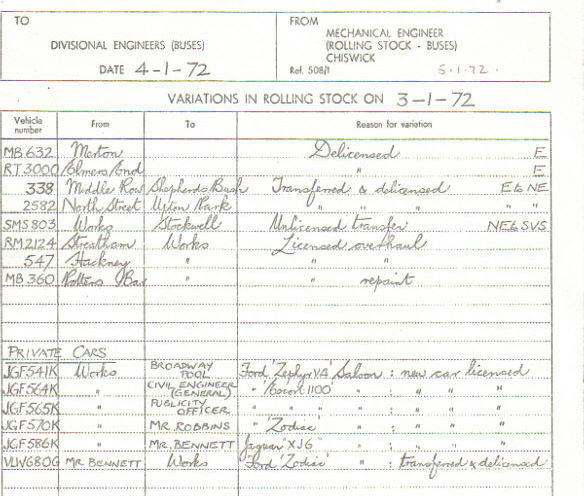 TO
DIVISIONAL ENGINEERS (BUSES)
DATE 4-1-72
FROM
MECHANICAL ENGINEER
(ROLLING STOCK - BUSES)
CHISWICK
Ref. 508/1 5.1.72.
VARIATIONS IN ROLLING STOCK ON 3-1-72
Vehicle number From To Reason for variation
MB 632 Merton Delicensed E
RT 3000 Elmers End " E
338 Middle Row Shepherds Bush Transferred & delicensed E6 NE
2582 North Street Upton Park " " " " "
SMS 803 Works Stockwell Unlicensed transfer NE6 SVS
RM 2124 Streatham Works Licensed overhaul
547 Hackney " " "
MB 360 Potters Bar " " repaint
PRIVATE CARS
JGF 541K Works BROADWAY POOL Ford 'Zephyr V4' Saloon : new car licensed
JGF 564K " CIVIL ENGINEER (GENERAL) " 'Escort 1100' " : " " "
JGF 565K " PUBLICITY OFFICER " " " " : " " "
JGF 570K " MR. ROBBINS " 'Zodiac' " : " " "
JGF 586K " MR. BENNETT Jaguar 'XJ6' " : " " "
VLW 680G MR BENNETT Works Ford 'Zodiac' " : transferred & delicensed